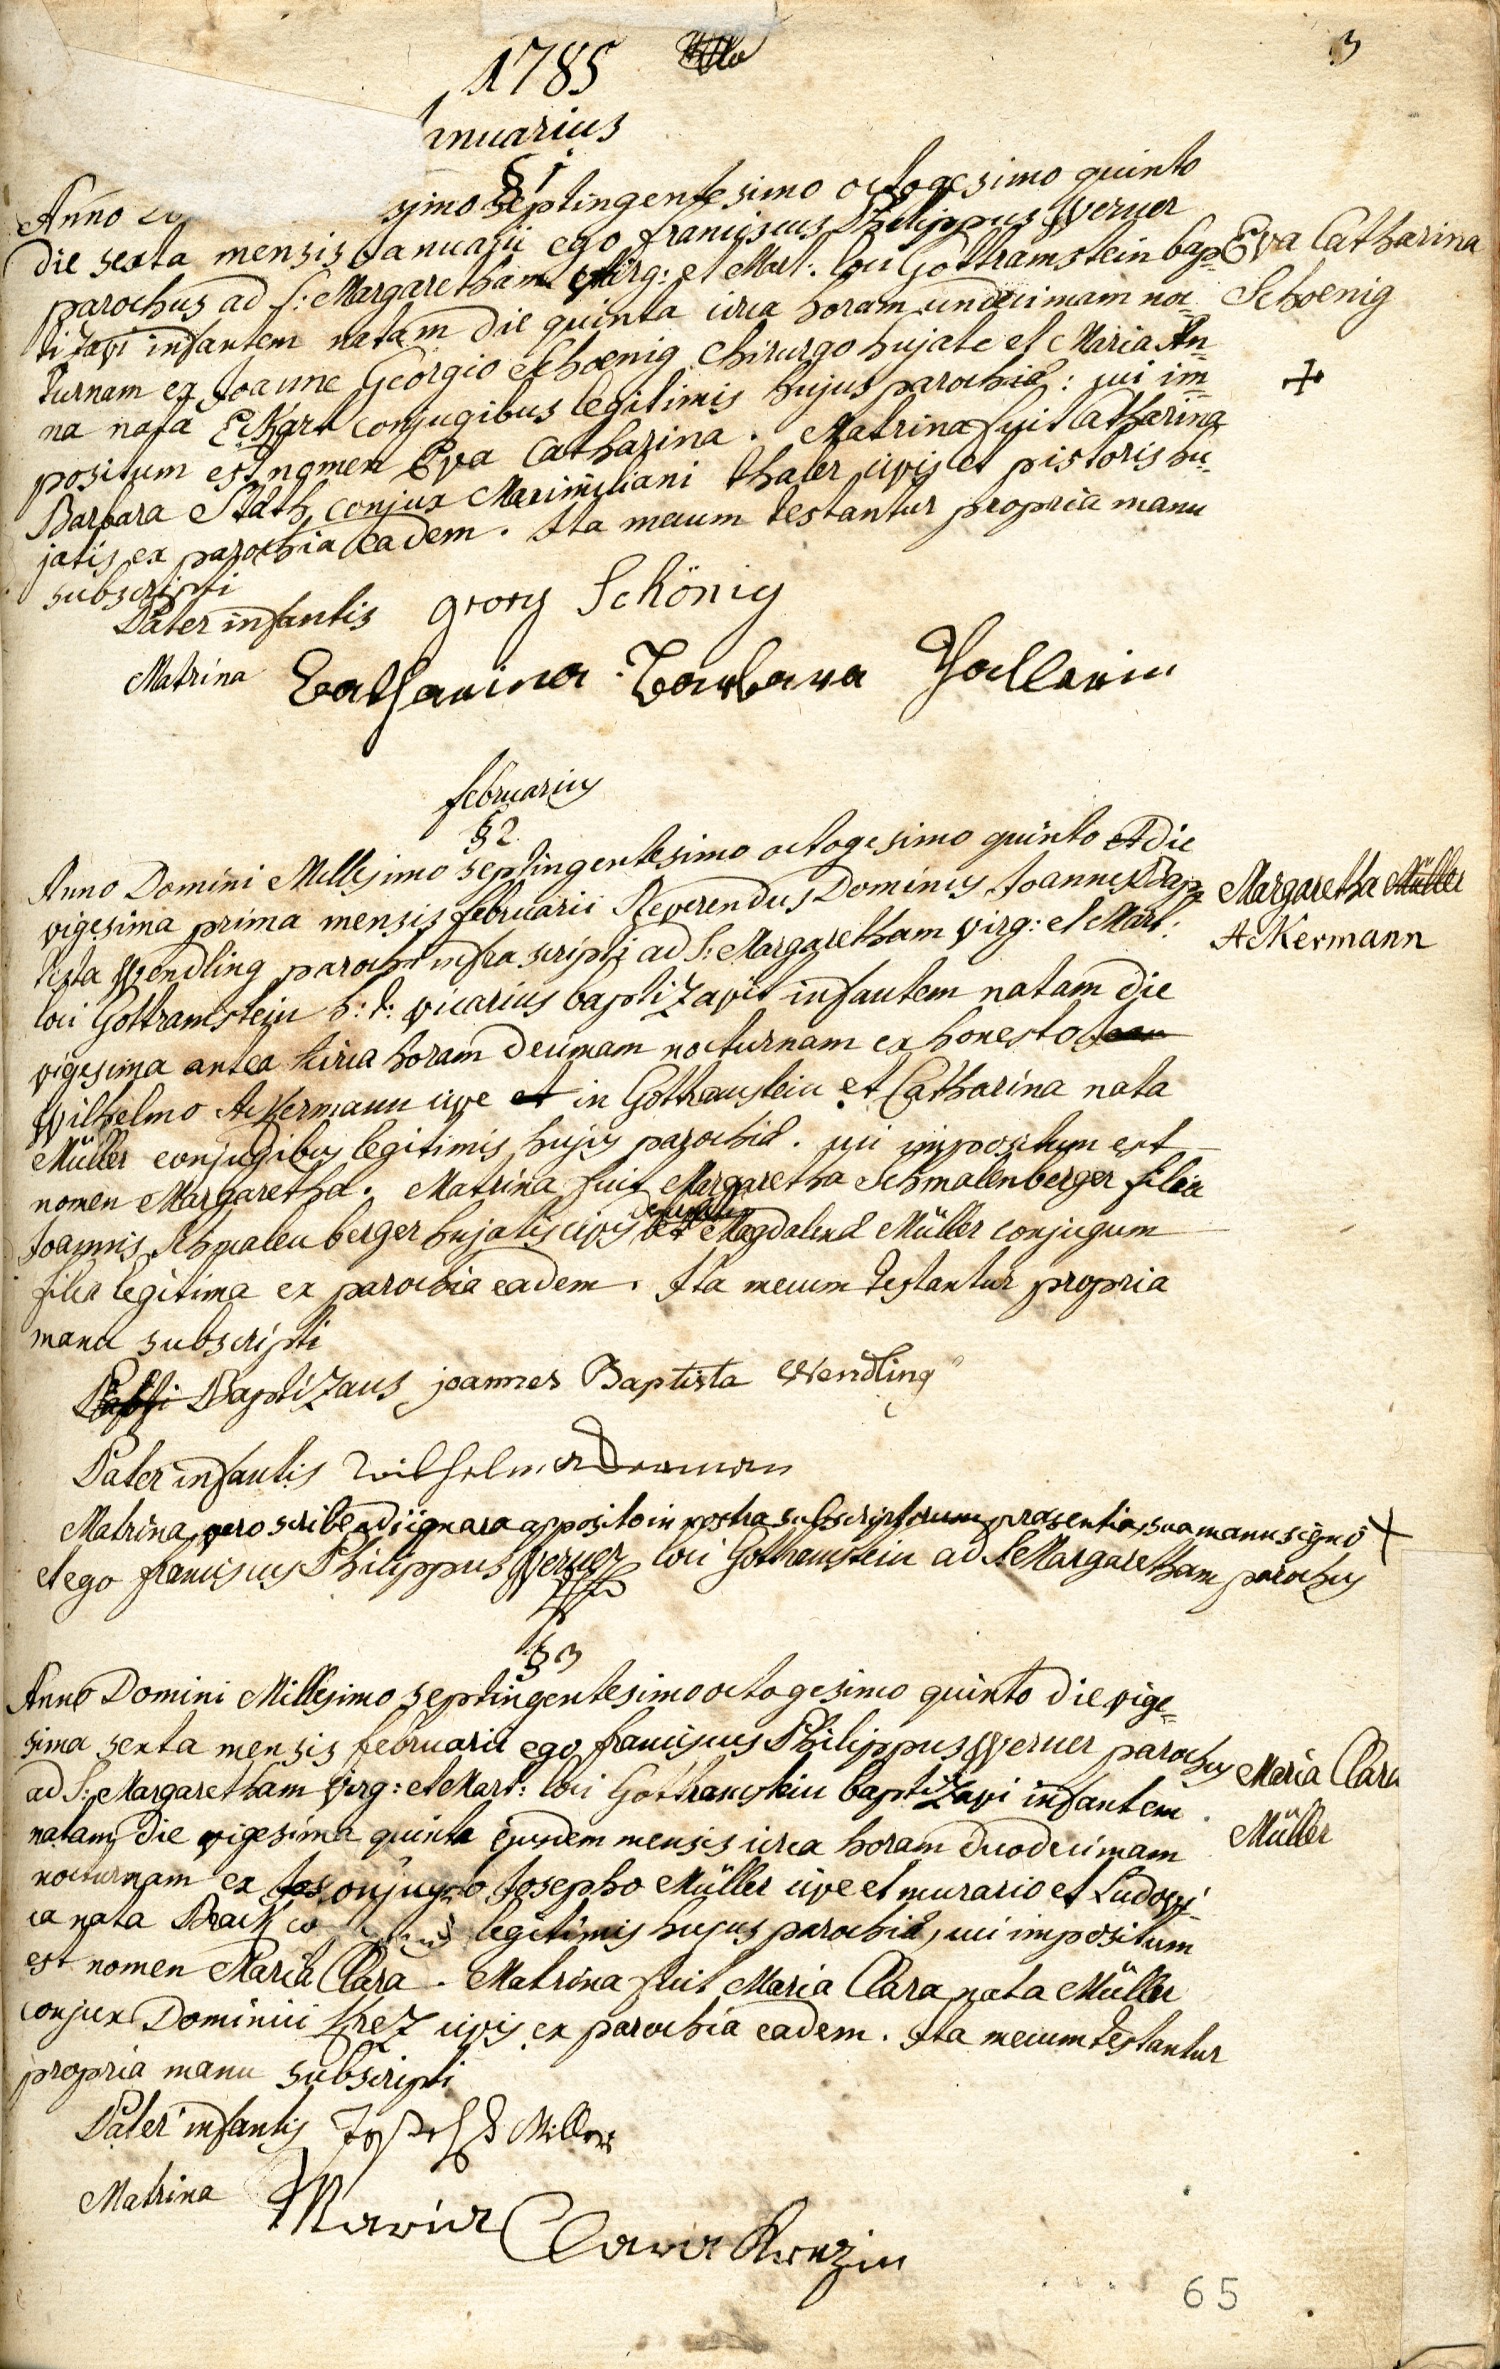 3
1785
anuarius
§ 1
Anno simo septingentesimo octogesimo quinto
die sexta mensis Januarii ego franciscus Philippus Werner
parochus ad S: Margaretham Virg: et Mart: loci Gottramstein bap-
tizavi infantem natam die quinta circa horam undecimam noc-
turnam ex Joanne Georgio Schoenig chirurgo hujate et Maria An-
na nata Eckart conjugibus legitimis hujus parochiæ: cui im-
positum est nomen Eva Catharina. Matrina fuit Catharina
Barbara conjux Maximiliani thaler civis et pistoris hu-
jatis ex parochia eadem. Ita mecum testantur propria manu
subscripti
Eva Catharina
Schoenig
+
Pater infantis georg Schönig
Matrina Catharina Barbara Thallerin
februarius
§ 2
Anno Domini Millesimo septingentesimo octogesimo quinto die
vigesima prima mensis februarii Reverendus Dominus Joannes Bap-
tista Wendling parochi infra scripti ad S: Margaretham virg: et Mart:
loci Gottramstein h: t: vicarius baptizavit infantem natam die
vigesima antea circa horam decimam nocturnam ex honesto
Wilhelmo Ackermann cive et in Gottramstein et Catharina nata
Müller conjugibus legitimis hujus parochiæ. cui impositum est
nomen Margaretha. Matrina fuit Margaretha Schmalenberger filia
Joannis Schmalenberger hujatis civis et Magdalenæ Müller conjugum
filia legitima ex parochia eadem. Ita mecum testantur propria
manu subscripti
Margaretha Müller
Ackermann
Baptizans joannes Baptista Wendling
Pater infantis Wilhelm
Matrina vero scribendi ignara apposito in nostra subscriptorum præsentia sua manu signo +
et ego franciscus Philippus Werner loci Gottramstein ad S. Margaretham parochus
§ 3
Anno Domini Millesimo septingentesimo octogesimo quinto die vige-
sima sexta mensis februarii ego franciscus Philippus Werner parochus
ad S: Margaretham Virg: et Mart: loci Gottramstein baptizavi infantem
natam die vigesima quinta ejusdem mensis circa horam duodecimam
nocturnam ex conjugio Josepho Müller cive et murario et Ludovi-
ca nata Brack legitimis hujus parochiæ, cui impositum
est nomen Maria Clara. Matrina fuit Maria Clara nata Müller
conjux Dominici Krez civis ex parochia eadem. Ita mecum testantur
propria manu subscripti
Maria Clara
Müller
Pater infantis Joseph Miller
Matrina Maria Clara Krezin
65